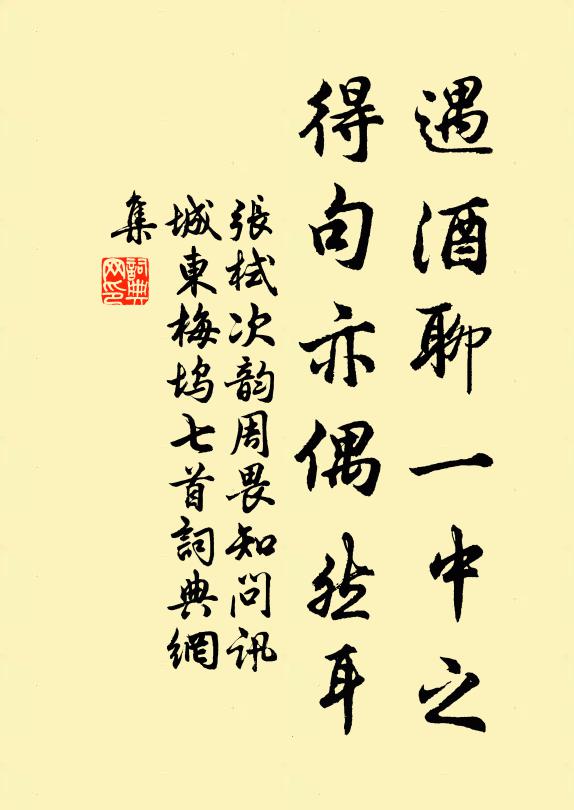 遇酒聊一中之
得句亦偶然耳
張栻次韵周畏知問訊
城東梅坞七首詞典網
集
詞典
网印